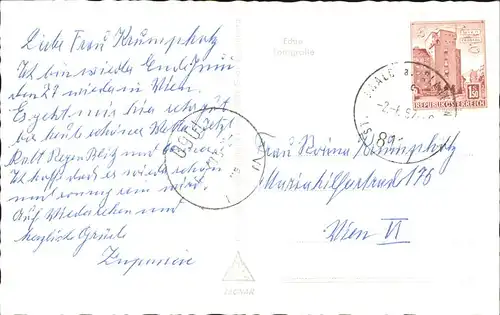 Liebe Frau Krumpholz
Ich bin wieder Ende Juni
den 27 wieder in Wien.
Es geht mir hier sehr gut
bis heute schönes Wetter jetzt
kalt Regen Blitz und
Ich hoffe das es wieder schön
und sonnig sein wird.
Auf Wiedersehen und
herzliche Grüße
Echte
Fotografie
1.50
REPUBLIK ÖSTERREICH
8 9
Frau Krumpholz
Mariahilferstraße 175
Wien VI